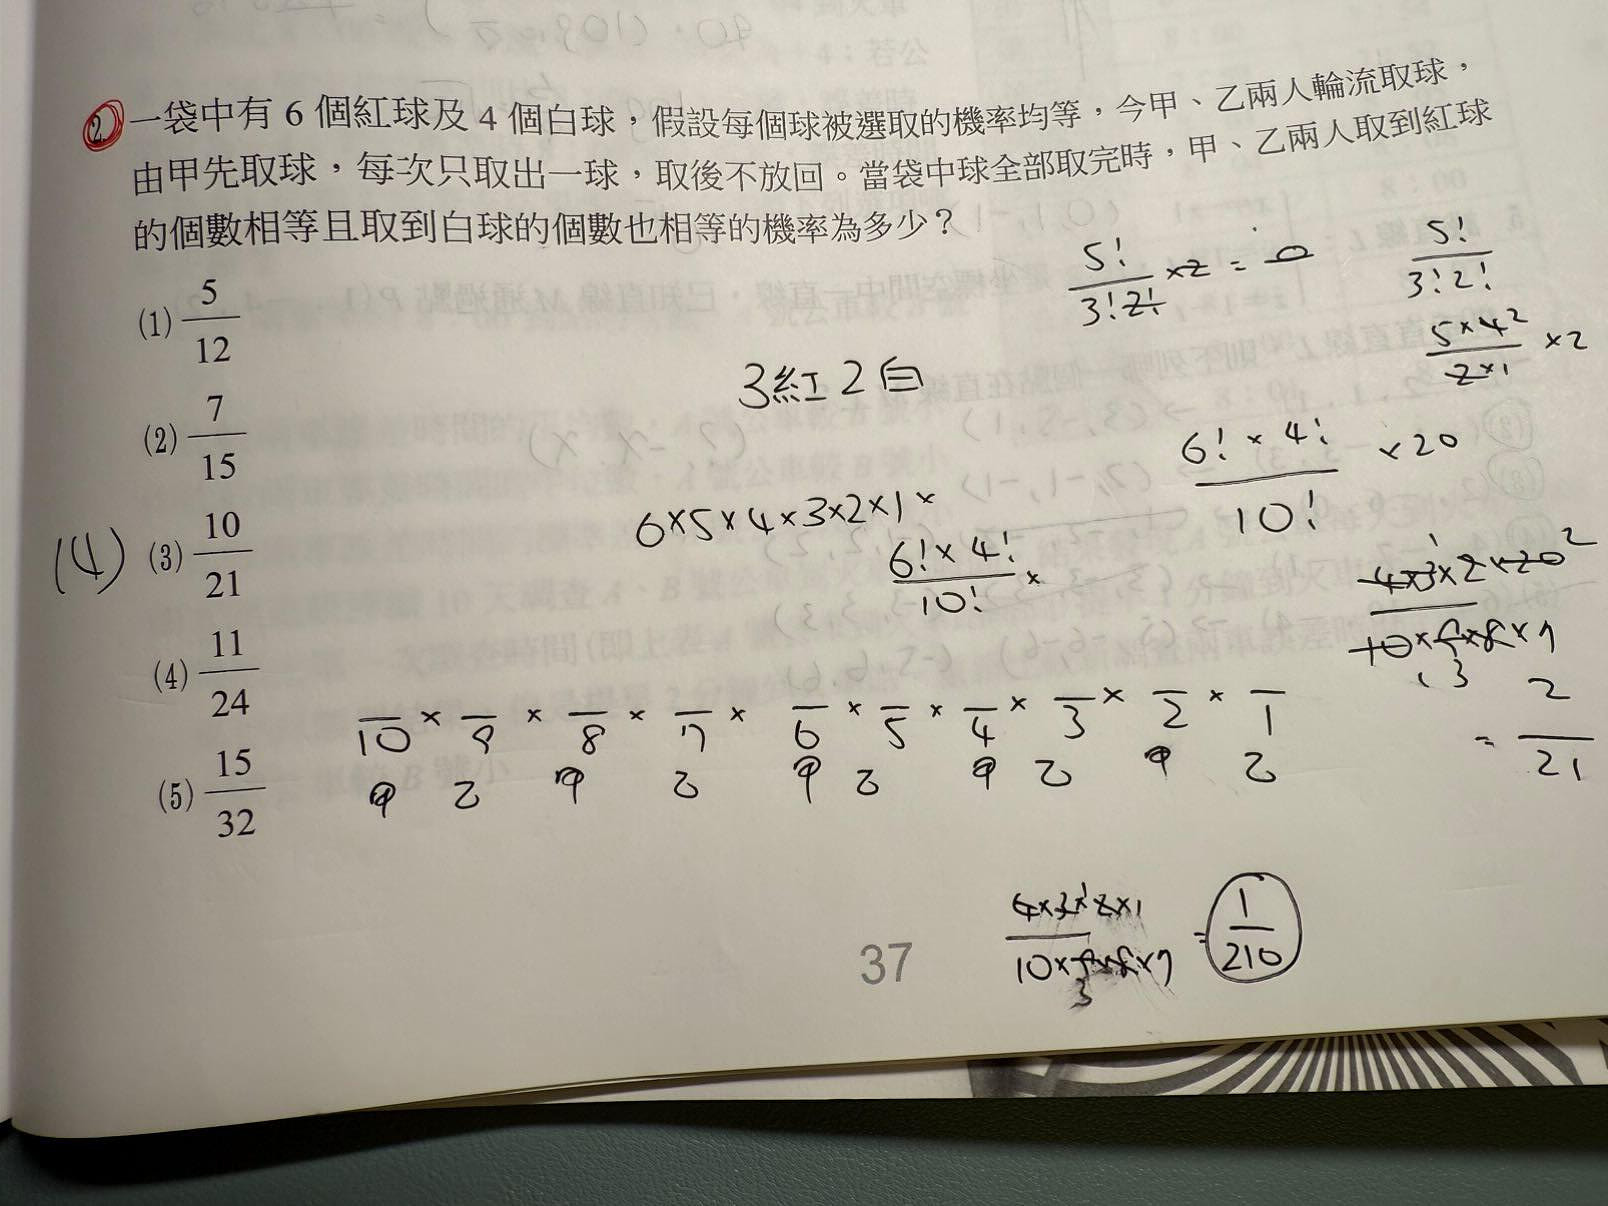 2. 一袋中有 6 個紅球及 4 個白球，假設每個球被選取的機率均等，今甲、乙兩人輪流取球，
由甲先取球，每次只取出一球，取後不放回。當袋中球全部取完時，甲、乙兩人取到紅球
的個數相等且取到白球的個數也相等的機率為多少？
(1) 5/12
(2) 7/15
(3) 10/21
(4) 11/24
(5) 15/32
(4)
5!/3!2! ×2 =
5!/3!2!
5×4²/2×1 ×2
3紅2白
6!×4!/10! ×20
6×5×4×3×2×1×
6!×4!/10! ×
4×3×2×20²/10×9×8×7
= 2/21
10 × 9 × 8 × 7 × 6 × 5 × 4 × 3 × 2 × 1
甲 乙 甲 乙 甲 乙 甲 乙 甲 乙
4×3×2×1/10×9×8×7 = 1/210
37